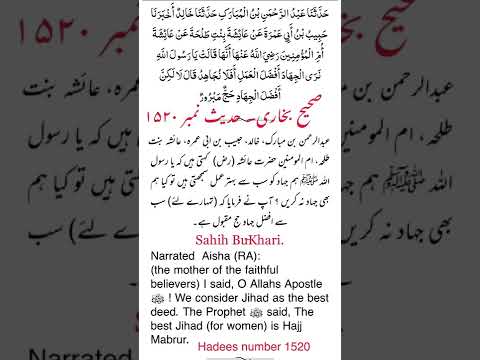 حَدَّثَنَا عَبْدُ الرَّحْمَنِ بْنُ الْمُبَارَكِ حَدَّثَنَا خَالِدٌ أَخْبَرَنَا
حَبِيبُ بْنُ أَبِي عَمْرَةَ عَنْ عَائِشَةَ بِنْتِ طَلْحَةَ عَنْ عَائِشَةَ
أُمِّ الْمُؤْمِنِينَ رَضِيَ اللَّهُ عَنْهَا أَنَّهَا قَالَتْ يَا رَسُولَ اللَّهِ
نَرَى الْجِهَادَ أَفْضَلَ الْعَمَلِ أَفَلَا نُجَاهِدُ قَالَ لَا لَكِنَّ
أَفْضَلَ الْجِهَادِ حَجٌّ مَبْرُورٌ
صحیح بخاری۔ حدیث نمبر ۱۵۲۰
عبدالرحمن بن مبارک، خالد، حبیب بن ابی عمرہ، عائشہ بنت
طلحہ، ام المومنین حضرت عائشہ (رض) کہتی ہیں کہ یا رسول
اللہ ﷺ ہم جہاد کو سب سے بہتر عمل سمجھتی ہیں تو کیا ہم
بھی جہاد نہ کریں؟ آپ نے فرمایا کہ (تمہارے لئے) سب
سے افضل جہاد حج مقبول ہے۔
Sahih BuKhari.
Narrated Aisha (RA):
(the mother of the faithful
believers) I said, O Allahs Apostle
ﷺ ! We consider Jihad as the best
deed. The Prophet ﷺ said, The
best Jihad (for women) is Hajj
Mabrur.
Hadees number 1520